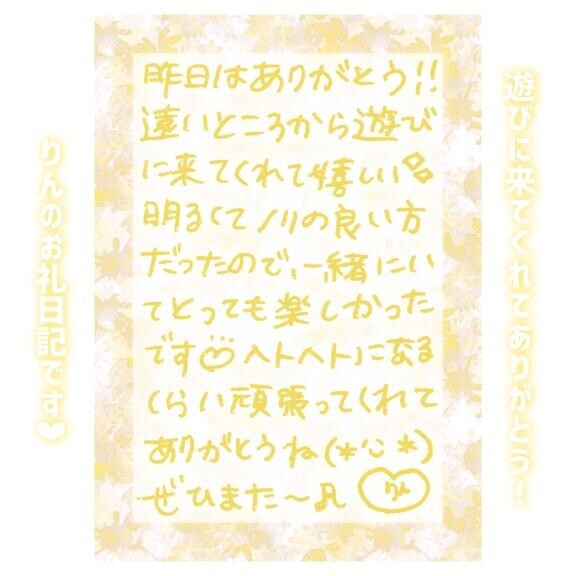 遊びに来てくれてありがとう!
昨日はありがとう!!
遠いところから遊び
に来てくれて嬉しい
明るくてノリの良い方
だったので、一緒にい
てとっても楽しかった
ですヘトヘトになる
くらい頑張ってくれて
ありがとうね(*'ω*)
ぜひまた〜♬
りん
りんのお礼日記です❤